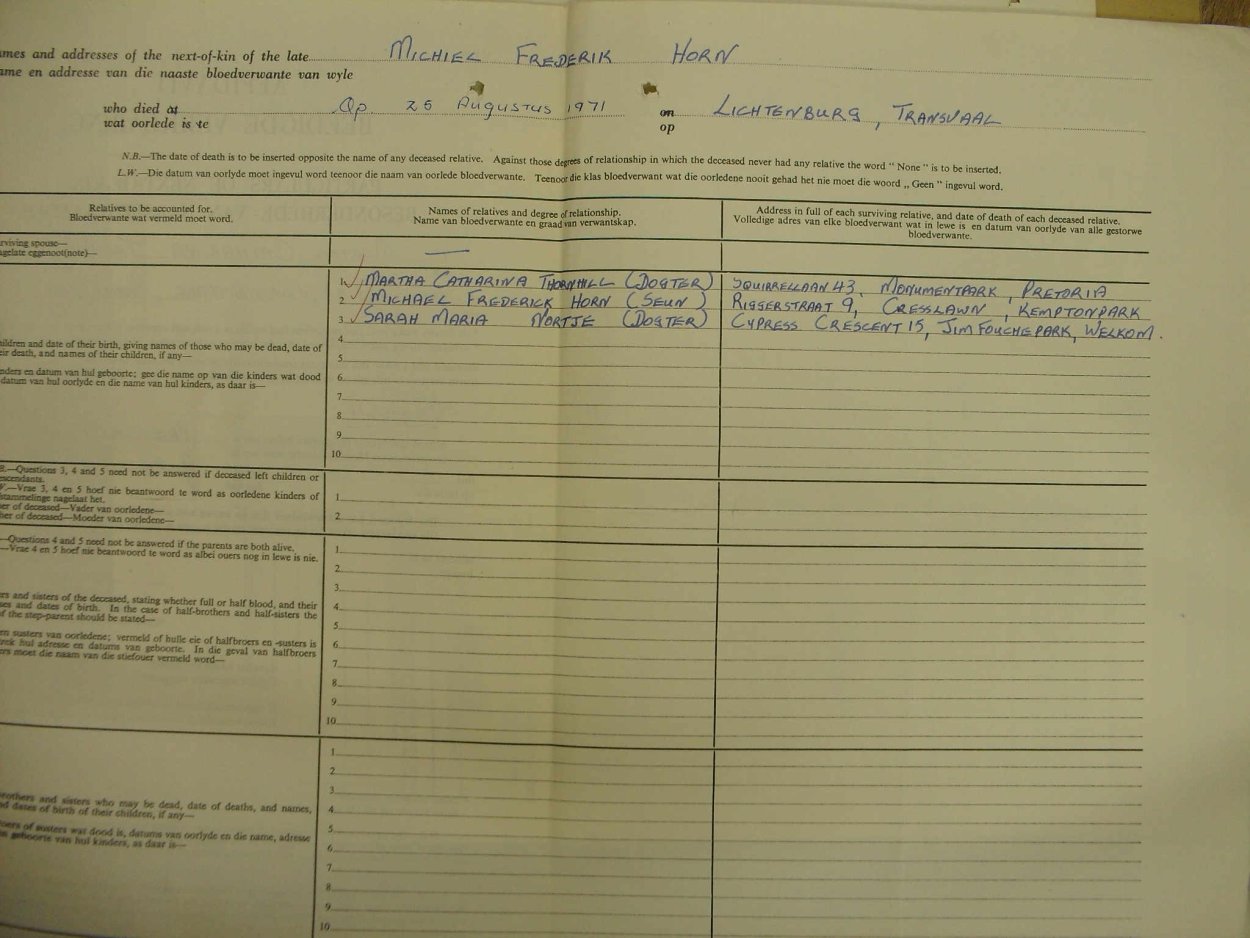 mes and addresses of the next-of-kin of the late MICHIEL FREDERIK HORN
ame en addresse van die naaste bloedverwante van wyle
who died at Op 25 Augustus 1971 on LICHTENBURG, TRANSVAAL
wat oorlede is te op
N.B.—The date of death is to be inserted opposite the name of any deceased relative. Against those degrees of relationship in which the deceased never had any relative the word "None" is to be inserted.
L.W.—Die datum van oorlyde moet ingevul word teenoor die naam van oorlede bloedverwante. Teenoor die klas bloedverwant wat die oorledene nooit gehad het nie moet die woord „Geen" ingevul word.
Relatives to be accounted for.
Bloedverwante wat vermeld moet word.
Names of relatives and degree of relationship.
Name van bloedverwante en graad van verwantskap.
Address in full of each surviving relative, and date of death of each deceased relative.
Volledige adres van elke bloedverwant wat in lewe is en datum van oorlyde van alle gestorwe
bloedverwante.
rviving spouse—
agelate eggenoot(note)—
1. MARTHA CATHARINA THORNHILL (DOGTER) SQUIRRELLAAN 43, MONUMENTPARK, PRETORIA
2. MICHAEL FREDERICK HORN (SEUN) RIGGERSTRAAT 9, CRESSLAWN, KEMPTONPARK
3. SARAH MARIA NORTJE (DOGTER) CYPRESS CRESCENT 15, JIM FOUCHEPARK, WELKOM.
4.
5.
6.
7.
8.
9.
10.
ildren and date of their birth, giving names of those who may be dead, date of
eir death, and names of their children, if any—
nders en datum van hul geboorte; gee die name op van die kinders wat dood
datum van hul oorlyde en die name van hul kinders, as daar is—
B.—Questions 3, 4 and 5 need not be answered if deceased left children or
escendants.
V.—Vrae 3, 4 en 5 hoef nie beantwoord te word as oorledene kinders of
fstammelinge nagelaat het.
her of deceased—Vader van oorledene—
her of deceased—Moeder van oorledene—
1.
2.
—Questions 4 and 5 need not be answered if the parents are both alive.
—Vrae 4 en 5 hoef nie beantwoord te word as albei ouers nog in lewe is nie.
ers and sisters of the deceased, stating whether full or half blood, and their
ses and dates of birth. In the case of half-brothers and half-sisters the
f the step-parent should be stated—
en susters van oorledene; vermeld of hulle eie of halfbroers en -susters is
rek hul adresse en datums van geboorte. In die geval van halfbroers
ers moet die naam van die stiefouer vermeld word—
1.
2.
3.
4.
5.
6.
7.
8.
9.
10.
rothers and sisters who may be dead, date of deaths, and names,
nd dates of birth of their children, if any—
oers of susters wat dood is, datums van oorlyde en die name, adresse
n geboorte van hul kinders, as daar is—
1.
2.
3.
4.
5.
6.
7.
8.
9.
10.